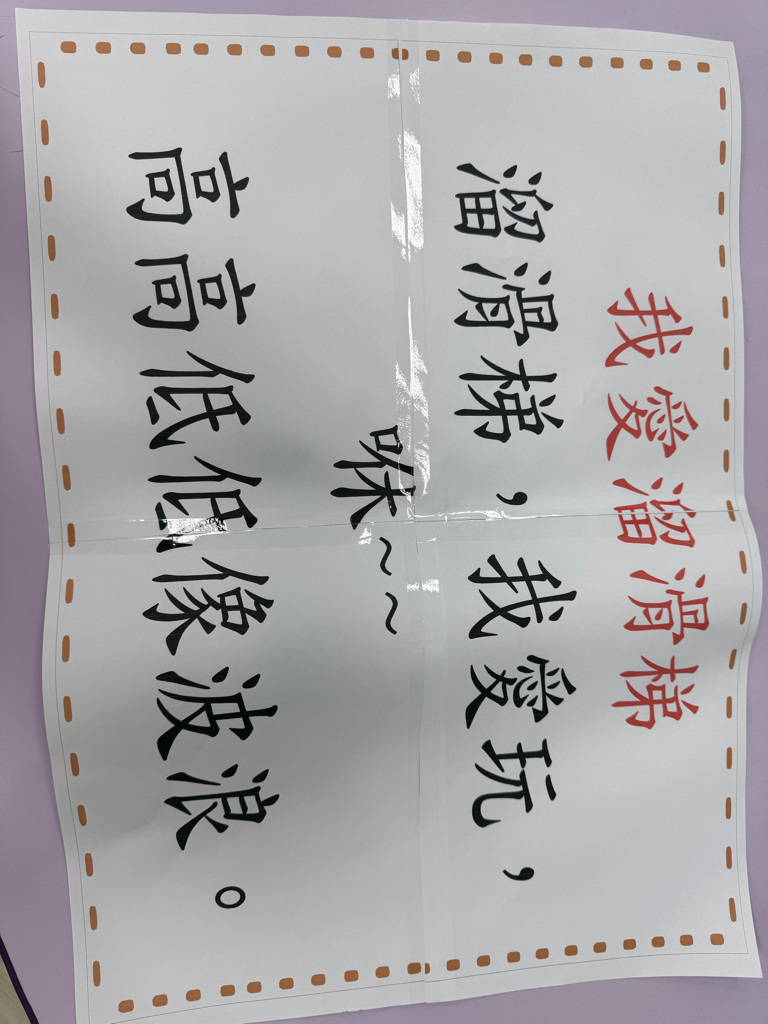 我愛溜滑梯
溜滑梯，我愛玩，
咻～～
高高低低像波浪。